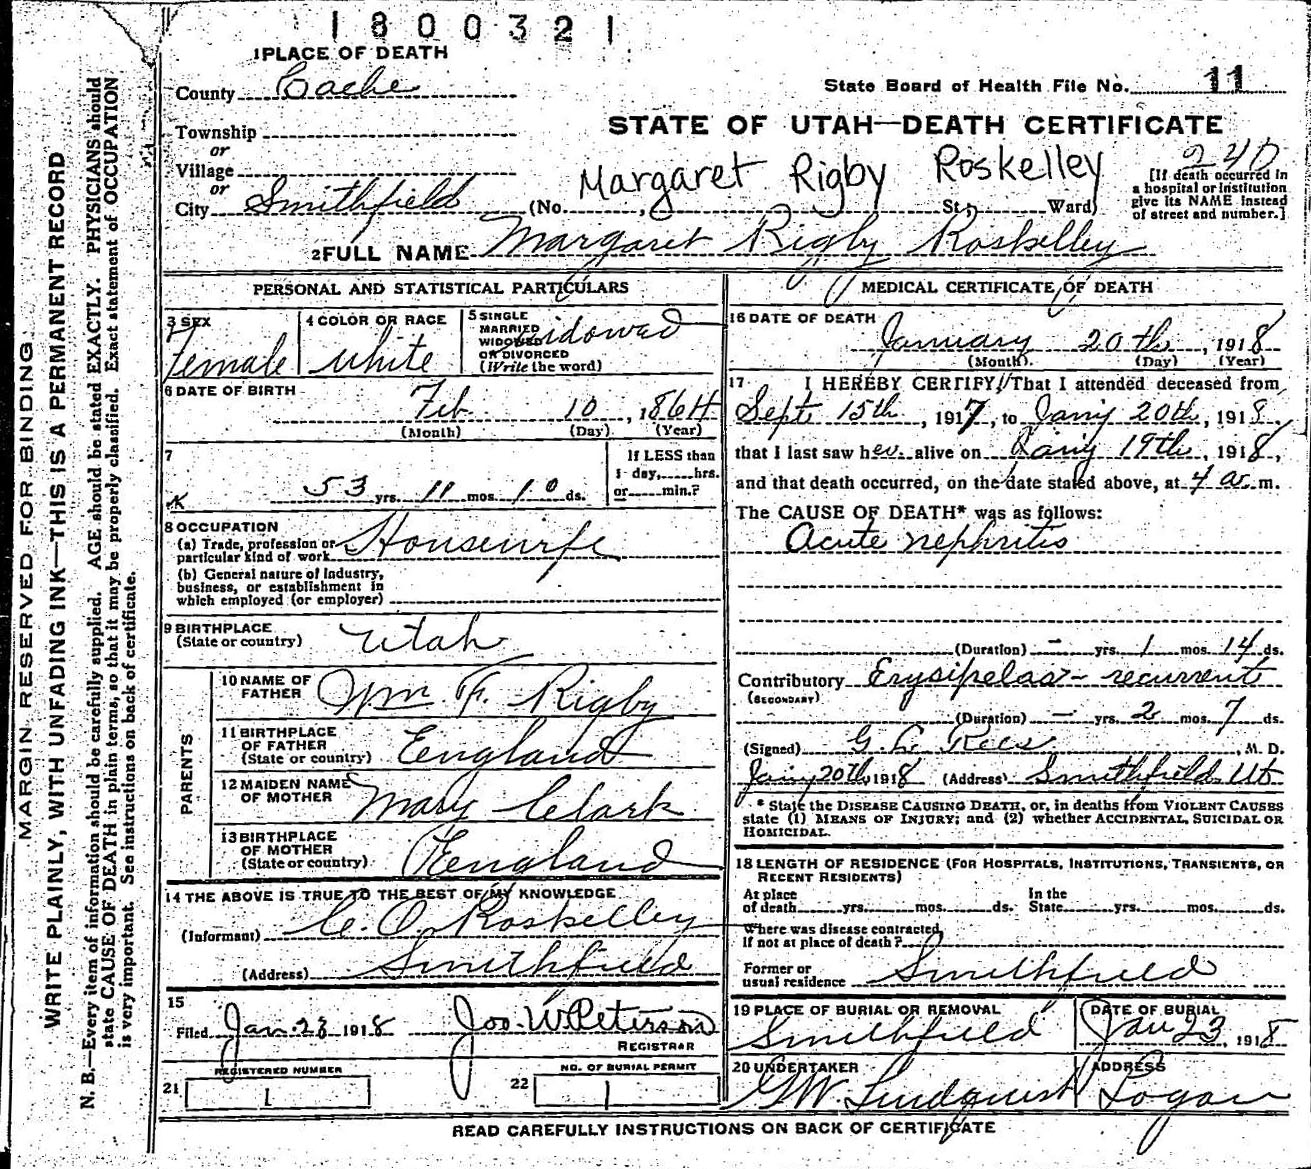 1800321
1 PLACE OF DEATH
County Cache
State Board of Health File No. 11
Township
or
Village
or
City Smithfield
STATE OF UTAH—DEATH CERTIFICATE
240
Margaret Rigby Roskelley
(No. , St; Ward)
[If death occurred in
a hospital or institution
give its NAME instead
of street and number.]
2 FULL NAME Margaret Rigby Roskelley
PERSONAL AND STATISTICAL PARTICULARS
3 SEX
Female
4 COLOR OR RACE
White
5 SINGLE
MARRIED
WIDOWED
OR DIVORCED
(Write the word)
widowed
6 DATE OF BIRTH
Feb 10, 1864
(Month) (Day) (Year)
7
53 yrs. 11 mos. 10 ds.
If LESS than
1 day, hrs.
or min.?
8 OCCUPATION
(a) Trade, profession or
particular kind of work Housewife
(b) General nature of Industry,
business, or establishment in
which employed (or employer)
9 BIRTHPLACE
(State or country) Utah
PARENTS
10 NAME OF
FATHER Wm F. Rigby
11 BIRTHPLACE
OF FATHER
(State or country) England
12 MAIDEN NAME
OF MOTHER Mary Clark
13 BIRTHPLACE
OF MOTHER
(State or country) England
14 THE ABOVE IS TRUE TO THE BEST OF MY KNOWLEDGE
(Informant) C. O. Roskelley
(Address) Smithfield
15
Filed Jan. 28 1918 Jos. W. Peterson
REGISTRAR
REGISTERED NUMBER
21 1
NO. OF BURIAL PERMIT
22 1
MEDICAL CERTIFICATE OF DEATH
16 DATE OF DEATH
January 20th, 1918
(Month) (Day) (Year)
17 I HEREBY CERTIFY, That I attended deceased from
Sept 15th, 1917, to Jan'y 20th, 1918,
that I last saw her alive on Jan'y 19th, 1918,
and that death occurred, on the date stated above, at 4 a. m.
The CAUSE OF DEATH* was as follows:
Acute nephritis
(Duration) — yrs. 1 mos. 14 ds.
Contributory Erysipelas - recurrent
(SECONDARY)
(Duration) — yrs. 2 mos. 7 ds.
(Signed) G. L. Rees, M. D.
Jan'y 20th 1918 (Address) Smithfield Ut
* State the DISEASE CAUSING DEATH, or, in deaths from VIOLENT CAUSES
state (1) MEANS OF INJURY; and (2) whether ACCIDENTAL, SUICIDAL OR
HOMICIDAL.
18 LENGTH OF RESIDENCE (FOR HOSPITALS, INSTITUTIONS, TRANSIENTS, OR
RECENT RESIDENTS)
At place
of death yrs. mos. ds.
In the
State yrs. mos. ds.
Where was disease contracted,
if not at place of death?
Former or
usual residence Smithfield
19 PLACE OF BURIAL OR REMOVAL
Smithfield
DATE OF BURIAL
Jan 23, 1918
20 UNDERTAKER
G W. Lindquist
ADDRESS
Logan
READ CAREFULLY INSTRUCTIONS ON BACK OF CERTIFICATE
MARGIN RESERVED FOR BINDING
WRITE PLAINLY, WITH UNFADING INK—THIS IS A PERMANENT RECORD
N. B.—Every item of information should be carefully supplied. AGE should be stated EXACTLY. PHYSICIANS should
state CAUSE OF DEATH in plain terms, so that it may be properly classified. Exact statement of OCCUPATION
is very important. See instructions on back of certificate.